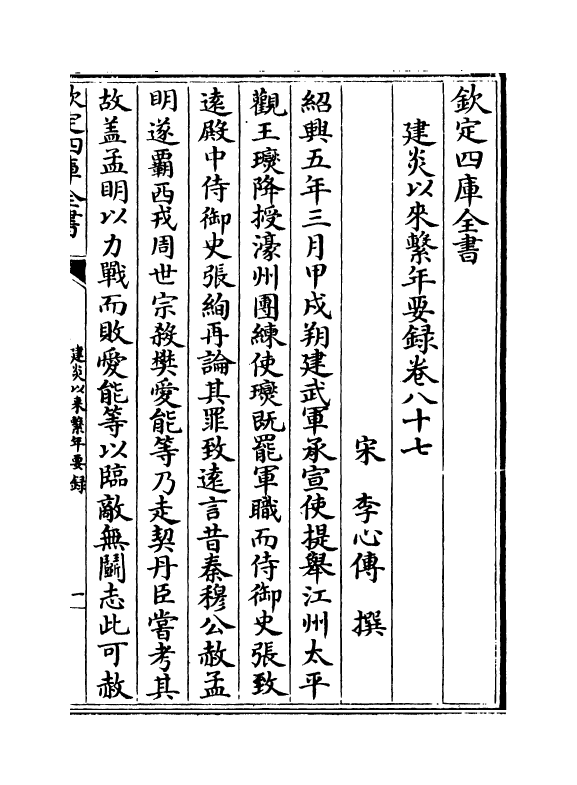 欽定四庫全書
建炎以來繫年要録卷八十七
宋 李心傳 撰
紹興五年三月甲戌朔建武軍承宣使提舉江州太平
觀王𤫉降授濠州團練使𤫉既罷軍職而侍御史張致
逺殿中侍御史張絢再論其罪致逺言昔秦穆公赦孟
明遂霸西戎周世宗殺樊愛能等乃走契丹臣嘗考其
故盖孟明以力戰而敗愛能等以臨敵無鬬志此可赦
欽定四庫全書
建炎以來繫年要録
一